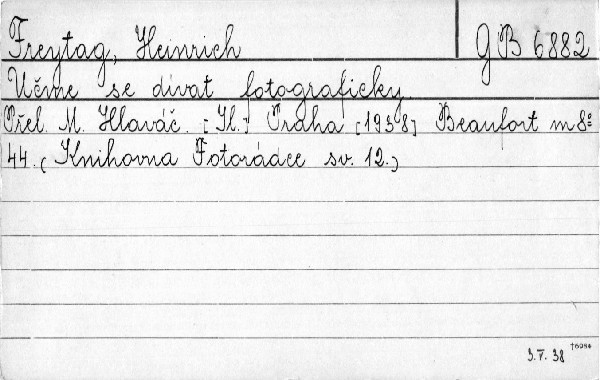 Freytag, Heinrich GB 6882
Učme se dívat fotograficky.
Přel. M. Hlaváč. [Il.] Praha [1938] Beaufort m 8º
44. (Knihovna Fotorádce sv. 12.)
3.V.38